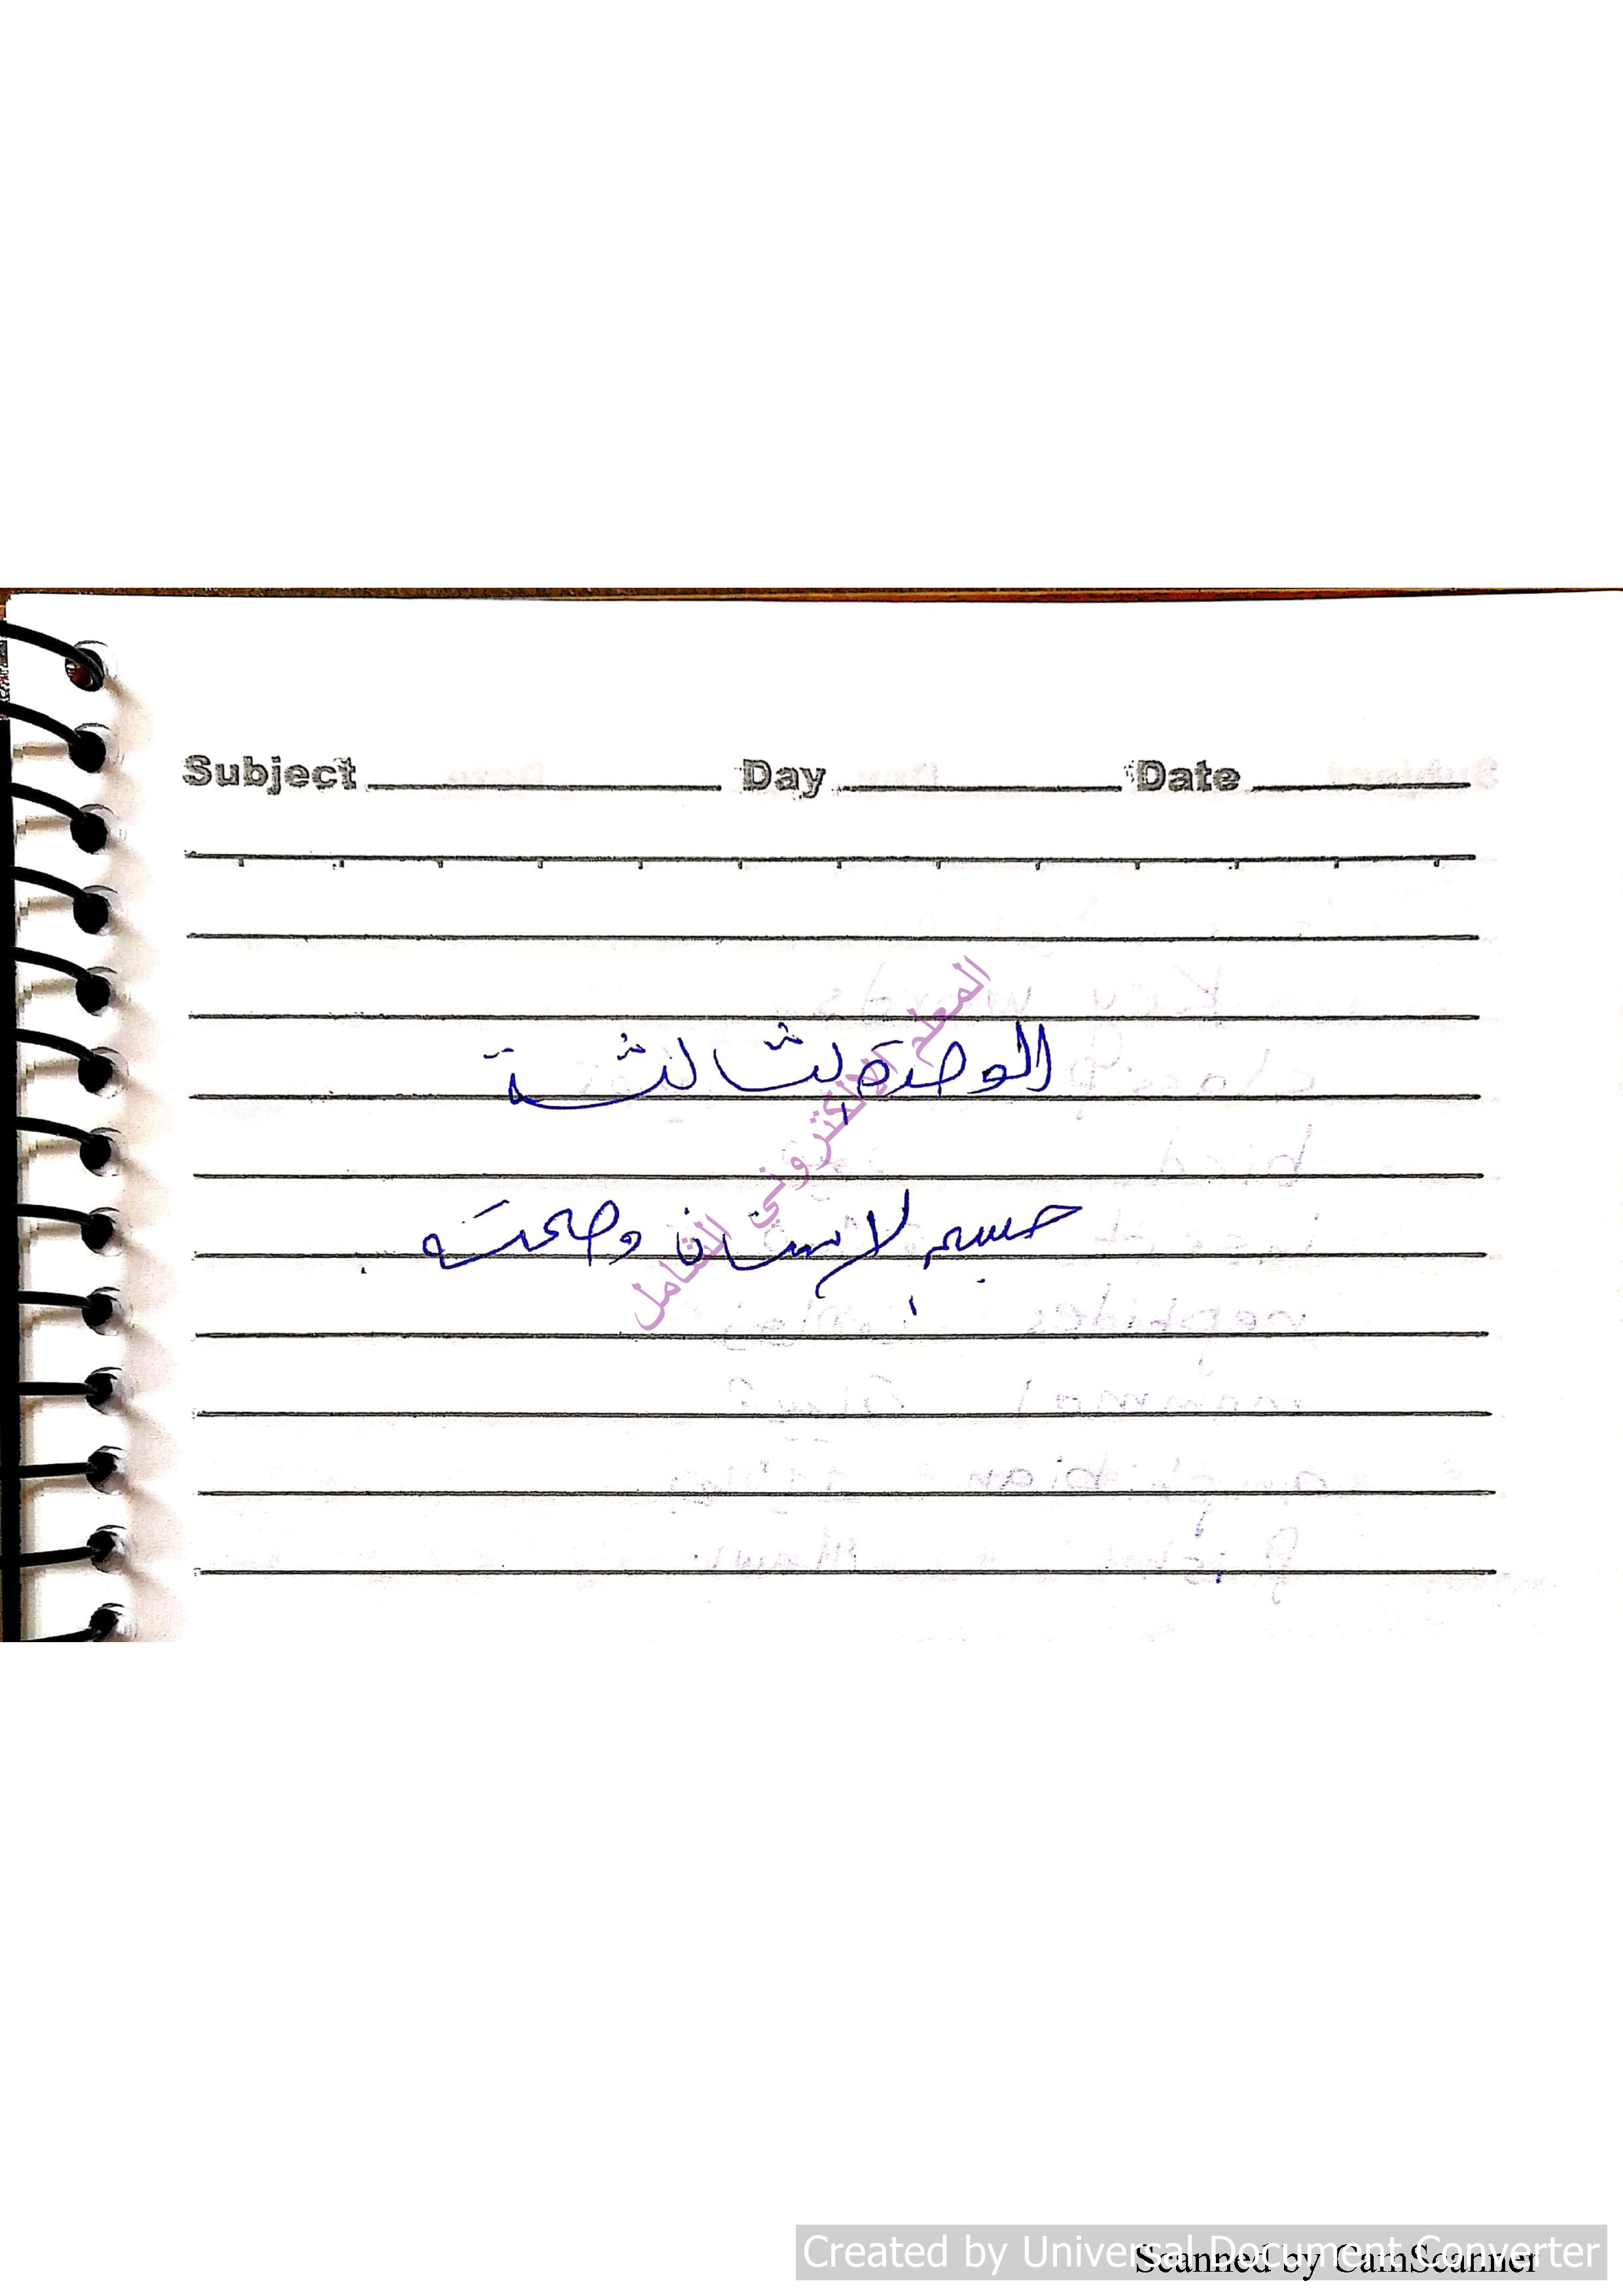 Subject Day Date
الوحدة الثالثة
جسم الإنسان وصحته.
المعلم الالكتروني الشامل
Created by Universal Document Converter
Scanned by CamScanner